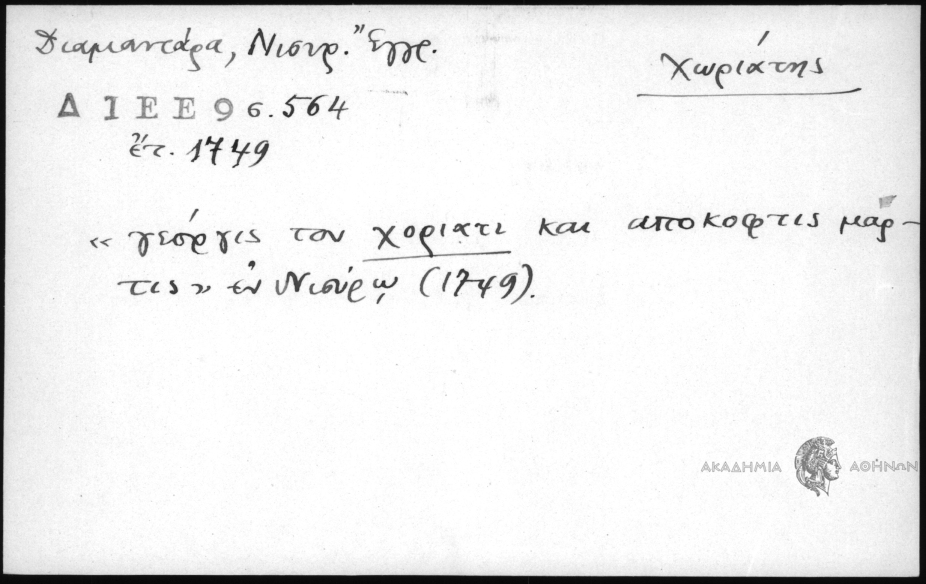 Διαμαντάρα, Νισυρ. Ἔγγρ.
Χωριάτης
Δ Ι Ε Ε 9 6.564
ἔτ. 1749
« γεόργις του χοριατι και αποκοφτις μάρ-
τις » ἐν Νισύρῳ (1749).
ΑΚΑΔΗΜΙΑ ΑΘΗΝΩΝ